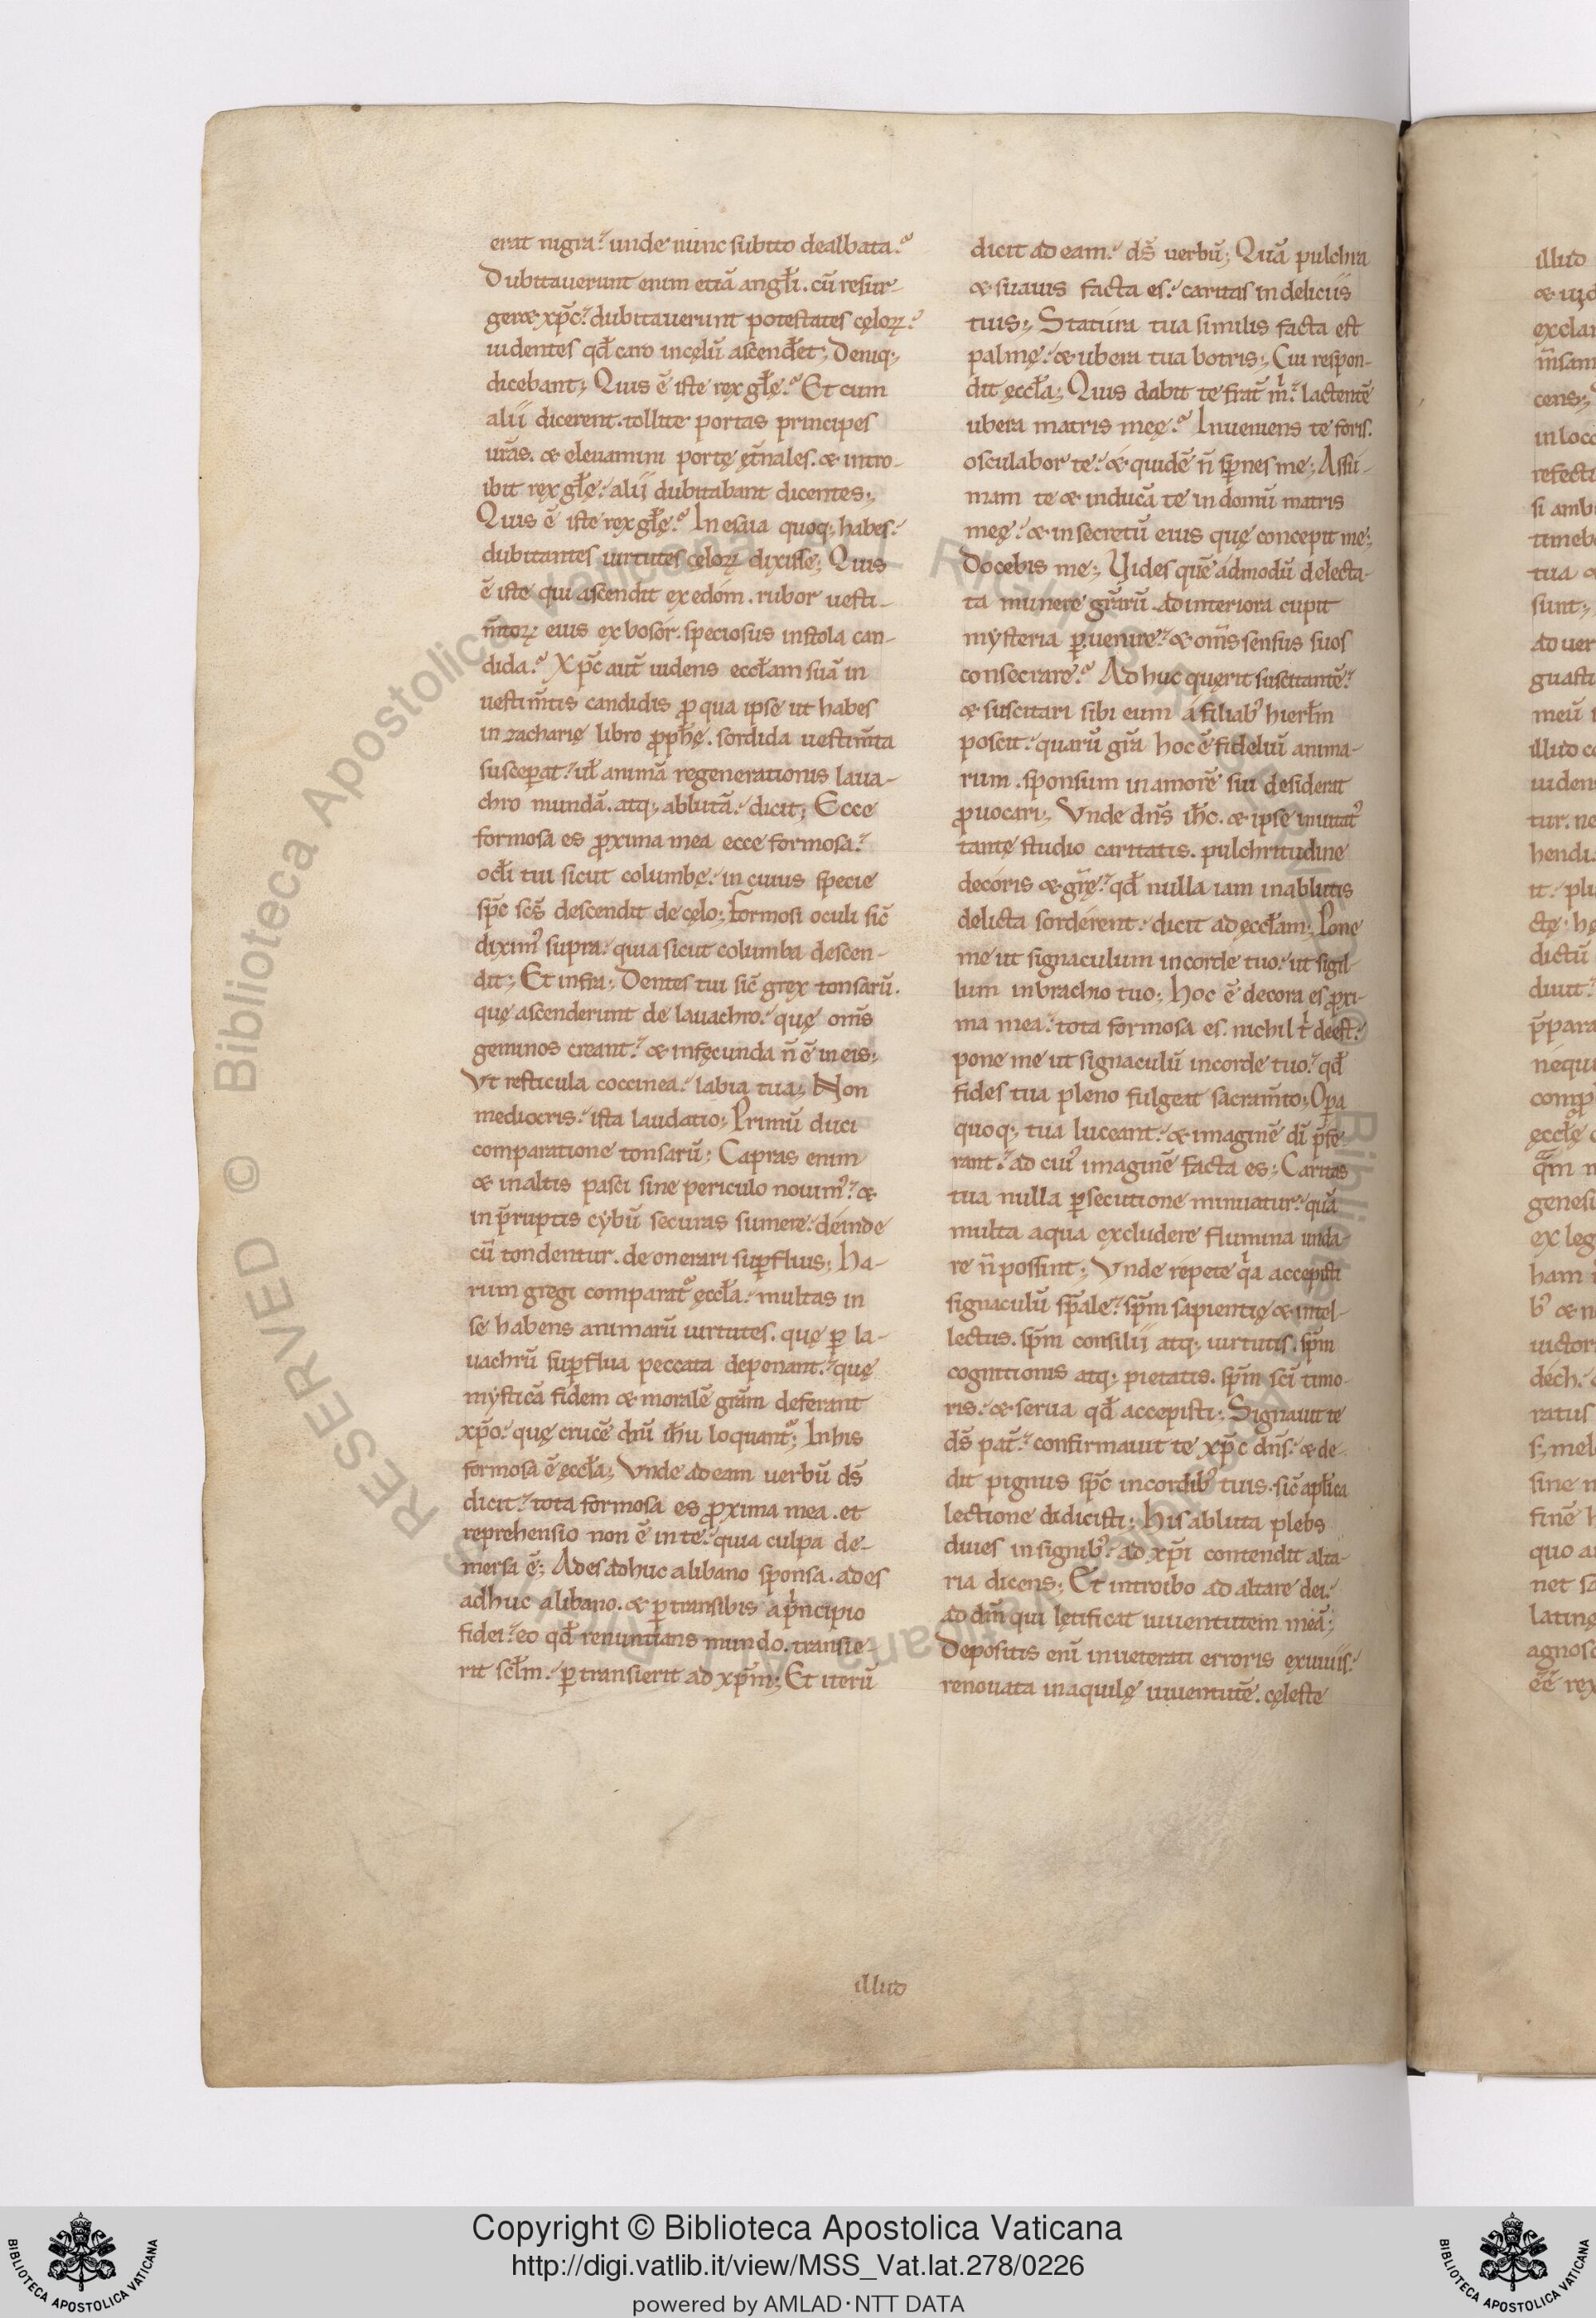 erat nigra? unde nunc subito dealbata?
Dubitauerunt enim etiā angłi. cū resur-
geret xp̄c. dubitauerunt potestates cęloꝝ.
uidentes qđ caro incęlū ascenđet; Deniq;
dicebant; Quis ē iste rex głę? Et cum
alii dicerent. tollite portas principes
ur̄as. & eleuamini portę ęt̄nales. & intro-
ibit rex głę. alii dubitabant dicentes;
Quis ē iste rex głę? In esaia quoq; habes.
dubitantes uirtutes cęloꝝ dixisse; Quis
ē iste qui ascendit ex edóm. rubor uesti-
m̄toꝝ eius ex bosór. speciosus instola can-
dida? Xp̄c aut̄ uidens eccłam suā in
uestim̄tis candidis ꝓ qua ipse ut habes
in zacharię libro ꝓpħę. sordida uestim̄ta
susceꝑat. uł animā regenerationis laua-
chro mundā. atq; ablutā. dicit; Ecce
formosa es ꝓxima mea ecce formosa.
ocłi tui sicut columbę. in cuius specie
sp̄c sc̄s descendit de cęlo; Formosi oculi sic̄
diximꝰ supra. quia sicut columba descen-
dit; Et infra; Dentes tui sic̄ grex tonsarū.
quę ascenderunt de lauachro. quę om̄s
geminos creant. & infęcunda n̄ ē in eis;
Vt resticula coccinea. labia tua; Non
mediocris. ista laudatio; Primū dulci
comparatione tonsarū; Capras enim
& inaltis pasci sine periculo nouimꝰ. &
inp̄ruptis cybū securas sumere. deinde
cū tondentur. de onerari suꝑfluis; Ha-
rum gregi comparat᷑ ęccła. multas in
se habens animarū uirtutes. quę ꝑ la-
uachrū suꝑflua peccata deponant. quę
mysticā fidem & moralē grām deferant
xp̄o. quę crucē dn̄i iħu loquant᷑; In his
formosa ē ęccła; Vnde ad eam uerbū dš
dicit. tota formosa es ꝓxima mea. et
reprehensio non ē in te. quia culpa de-
mersa ē; Ades adhuc a libano sponsa. ades
adhuc a libano. & ꝑtransibis a pͥncipio
fidei. eo qđ renuntians mundo. transie-
rit scłm. ꝑtransierit ad xp̄m; Et iterū
dicit ad eam. dš uerbū; Quā pulchra
& suauis facta es. caritas in deliciis
tuis; Statura tua similis facta est
palmę. & ubera tua botris; Cui respon-
dit ęccła; Quis dabit te frat̄ mͥ. lactentē
ubera matris meę? Inueniens te foris.
osculabor te. & quidē n̄ sꝑnes me; Assu-
mam te & inducā te in domū matris
meę. & in secretū eius quę concepit me;
Docebis me; Uides quē admodū delecta-
ta munere grārū. ad interiora cupit
mysteria ꝑuenire. & om̄s sensus suos
consecrare? Ad huc quęrit suscitantē.
& suscitari sibi eum a filiabꝰ hierłm
poscit. quarū grā hoc ē fideliū anima-
rum. sponsum in amorē sui desiderat
ꝓuocari; Vnde dn̄s iħc. & ipse inuitat᷑
tantę studio caritatis. pulchritudine
decoris & gr̄ę. qđ nulla iam in ablutis
delicta sordérent. dicit ad ęccłam; Pone
me ut signaculum incorde tuo. ut sigil-
lum inbrachio tuo; Hoc ē decora es ꝓxi-
ma mea. tota formosa es. nichil tͥ deest.
pone me ut signaculū incorde tuo. qđ
fides tua pleno fulgeat sacram̄to; Oꝑa
quoq; tua luceant. & imaginē dī p̄fe-
rant. ad cuiꝰ imaginē facta es; Caritas
tua nulla ꝑsecutione minuatur. quā
multa aqua excludere flumina unda-
re n̄ possint; Vnde repete qͥa accepisti
signaculū sp̄ale. sp̄m sapientię & intel-
lectus. sp̄m consilii atq; uirtutis. sp̄m
cognitionis atq; pietatis. sp̄m sc̄i timo-
ris. & serua qđ accepisti; Signauit te
dš pat̄. confirmauit te xp̄c dn̄s. & de-
dit pignus sp̄c in cordibꝰ tuis. sic̄ apłica
lectione didicisti; His abluta plebs
diues insignibꝰ. ad xp̄i contendit alta-
ria dicens; Et introibo ad altare dei.
ad dm̄ qui lętificat iuuentutem meā;
Depositis enī inueterati erroris exuuiis.
renouata in aquilę iuuentutē. cęleste
illud
Copyright © Biblioteca Apostolica Vaticana
http://digi.vatlib.it/view/MSS_Vat.lat.278/0226
powered by AMLAD·NTT DATA